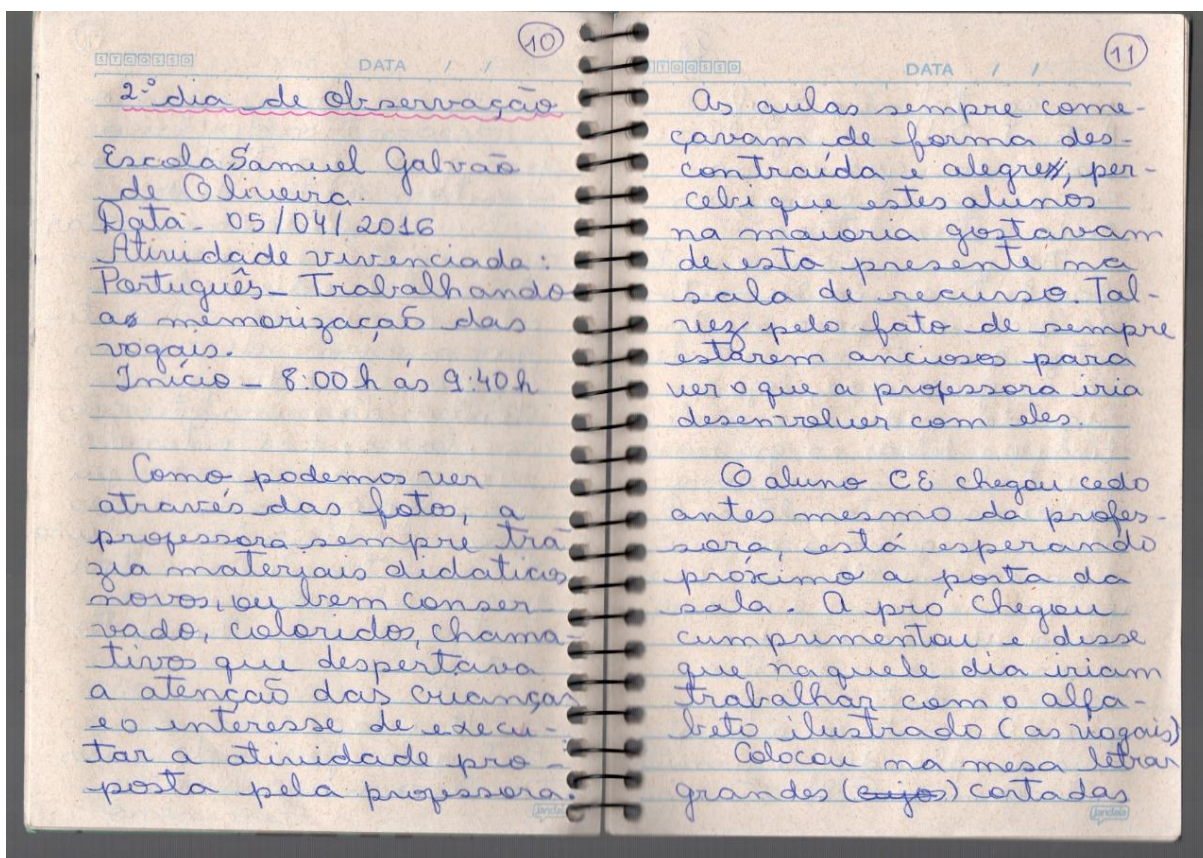 10
STQQSSD
DATA / /
2º dia de observação
Escola Samuel Galvão
de Oliveira.
Data - 05/04/2016
Atividade vivenciada:
Português - Trabalhando
as memorização das
vogais.
Início - 8:00 h ás 9:40 h
Como podemos ver
através das fotos, a
professora sempre tra
zia materiais didaticos
novos, ou bem conser-
vado, coloridos, chama-
tivos que despertava
a atenção das crianças
e o interesse de execu-
tar a atividade pro-
posta pela professora.
jandaia
11
DATA / /
As aulas sempre come-
çavam de forma des-
contraída e alegre, per-
cebi que estes alunos
na maioria gostavam
de esta presente na
sala de recurso. Tal-
vez pelo fato de sempre
estarem anciosos para
ver o que a professora iria
desenvolver com eles.
O aluno CE chegou cedo
antes mesmo da profes-
sora, está esperando
próximo a porta da
sala. A pró chegou
cumprimentou e disse
que naquele dia iriam
trabalhar com o alfa-
beto ilustrado (as vogais)
Colocou na mesa letras
grandes (cujos) cortadas
jandaia